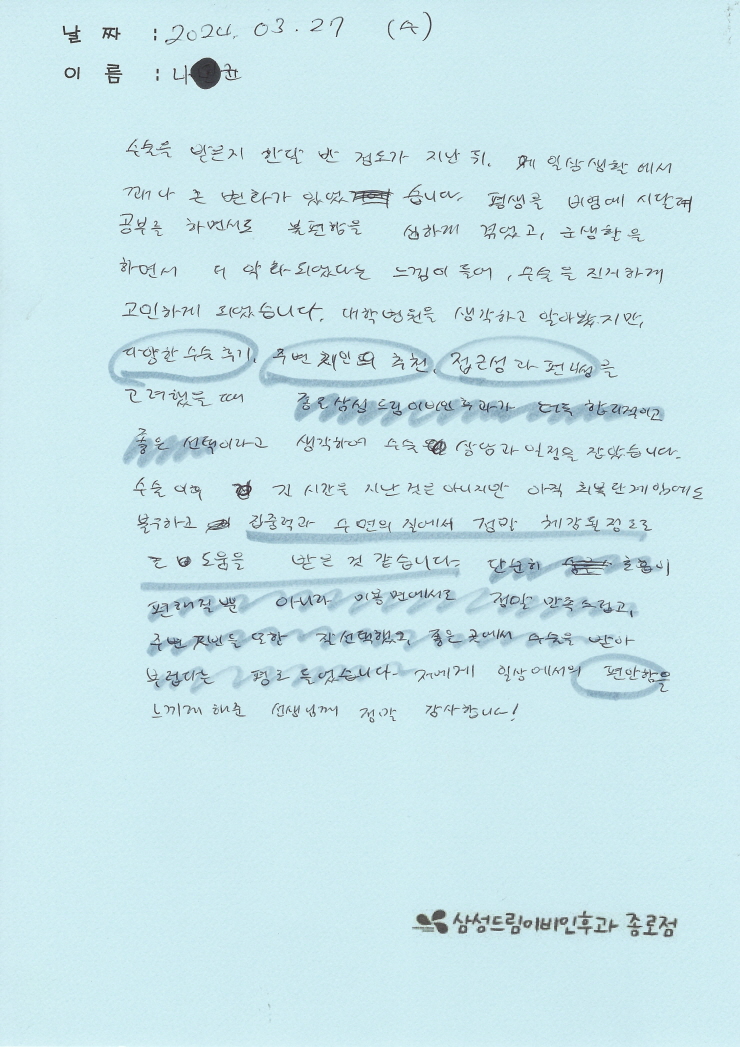 날 짜 : 2024. 03. 27 (수)
이 름 : 나 균
수술을 받은지 한달 반 정도가 지난 뒤, 제 일상생활에서
꽤나 큰 변화가 있었습니다. 평생을 비염에 시달려
공부를 하면서도 불편함을 심하게 겪었고, 군생활을
하면서 더 악화되었다는 느낌이 들어, 수술을 진지하게
고민하게 되었습니다. 대학병원을 생각하고 알아봤지만,
다양한 수술 후기, 주변 지인의 추천, 접근성과 편의성을
고려했을 때 종로삼성드림이비인후과가 더욱 합리적이고
좋은 선택이라고 생각하여 수술 상담과 일정을 잡았습니다.
수술 이후 긴 시간을 지난 것은 아니지만 아직 회복단계임에도
불구하고 집중력과 수면의 질에서 정말 체감될정도로
큰 도움을 받은 것 같습니다. 단순히 호흡이
편해질뿐 아니라 미용면에서도 정말 만족스럽고,
주변 지인들 또한 잘 선택했고, 좋은 곳에서 수술을 받아
부럽다는 평도 들었습니다. 저에게 일상에서의 편안함을
느끼게 해준 선생님께 정말 감사합니다!
삼성드림이비인후과 종로점